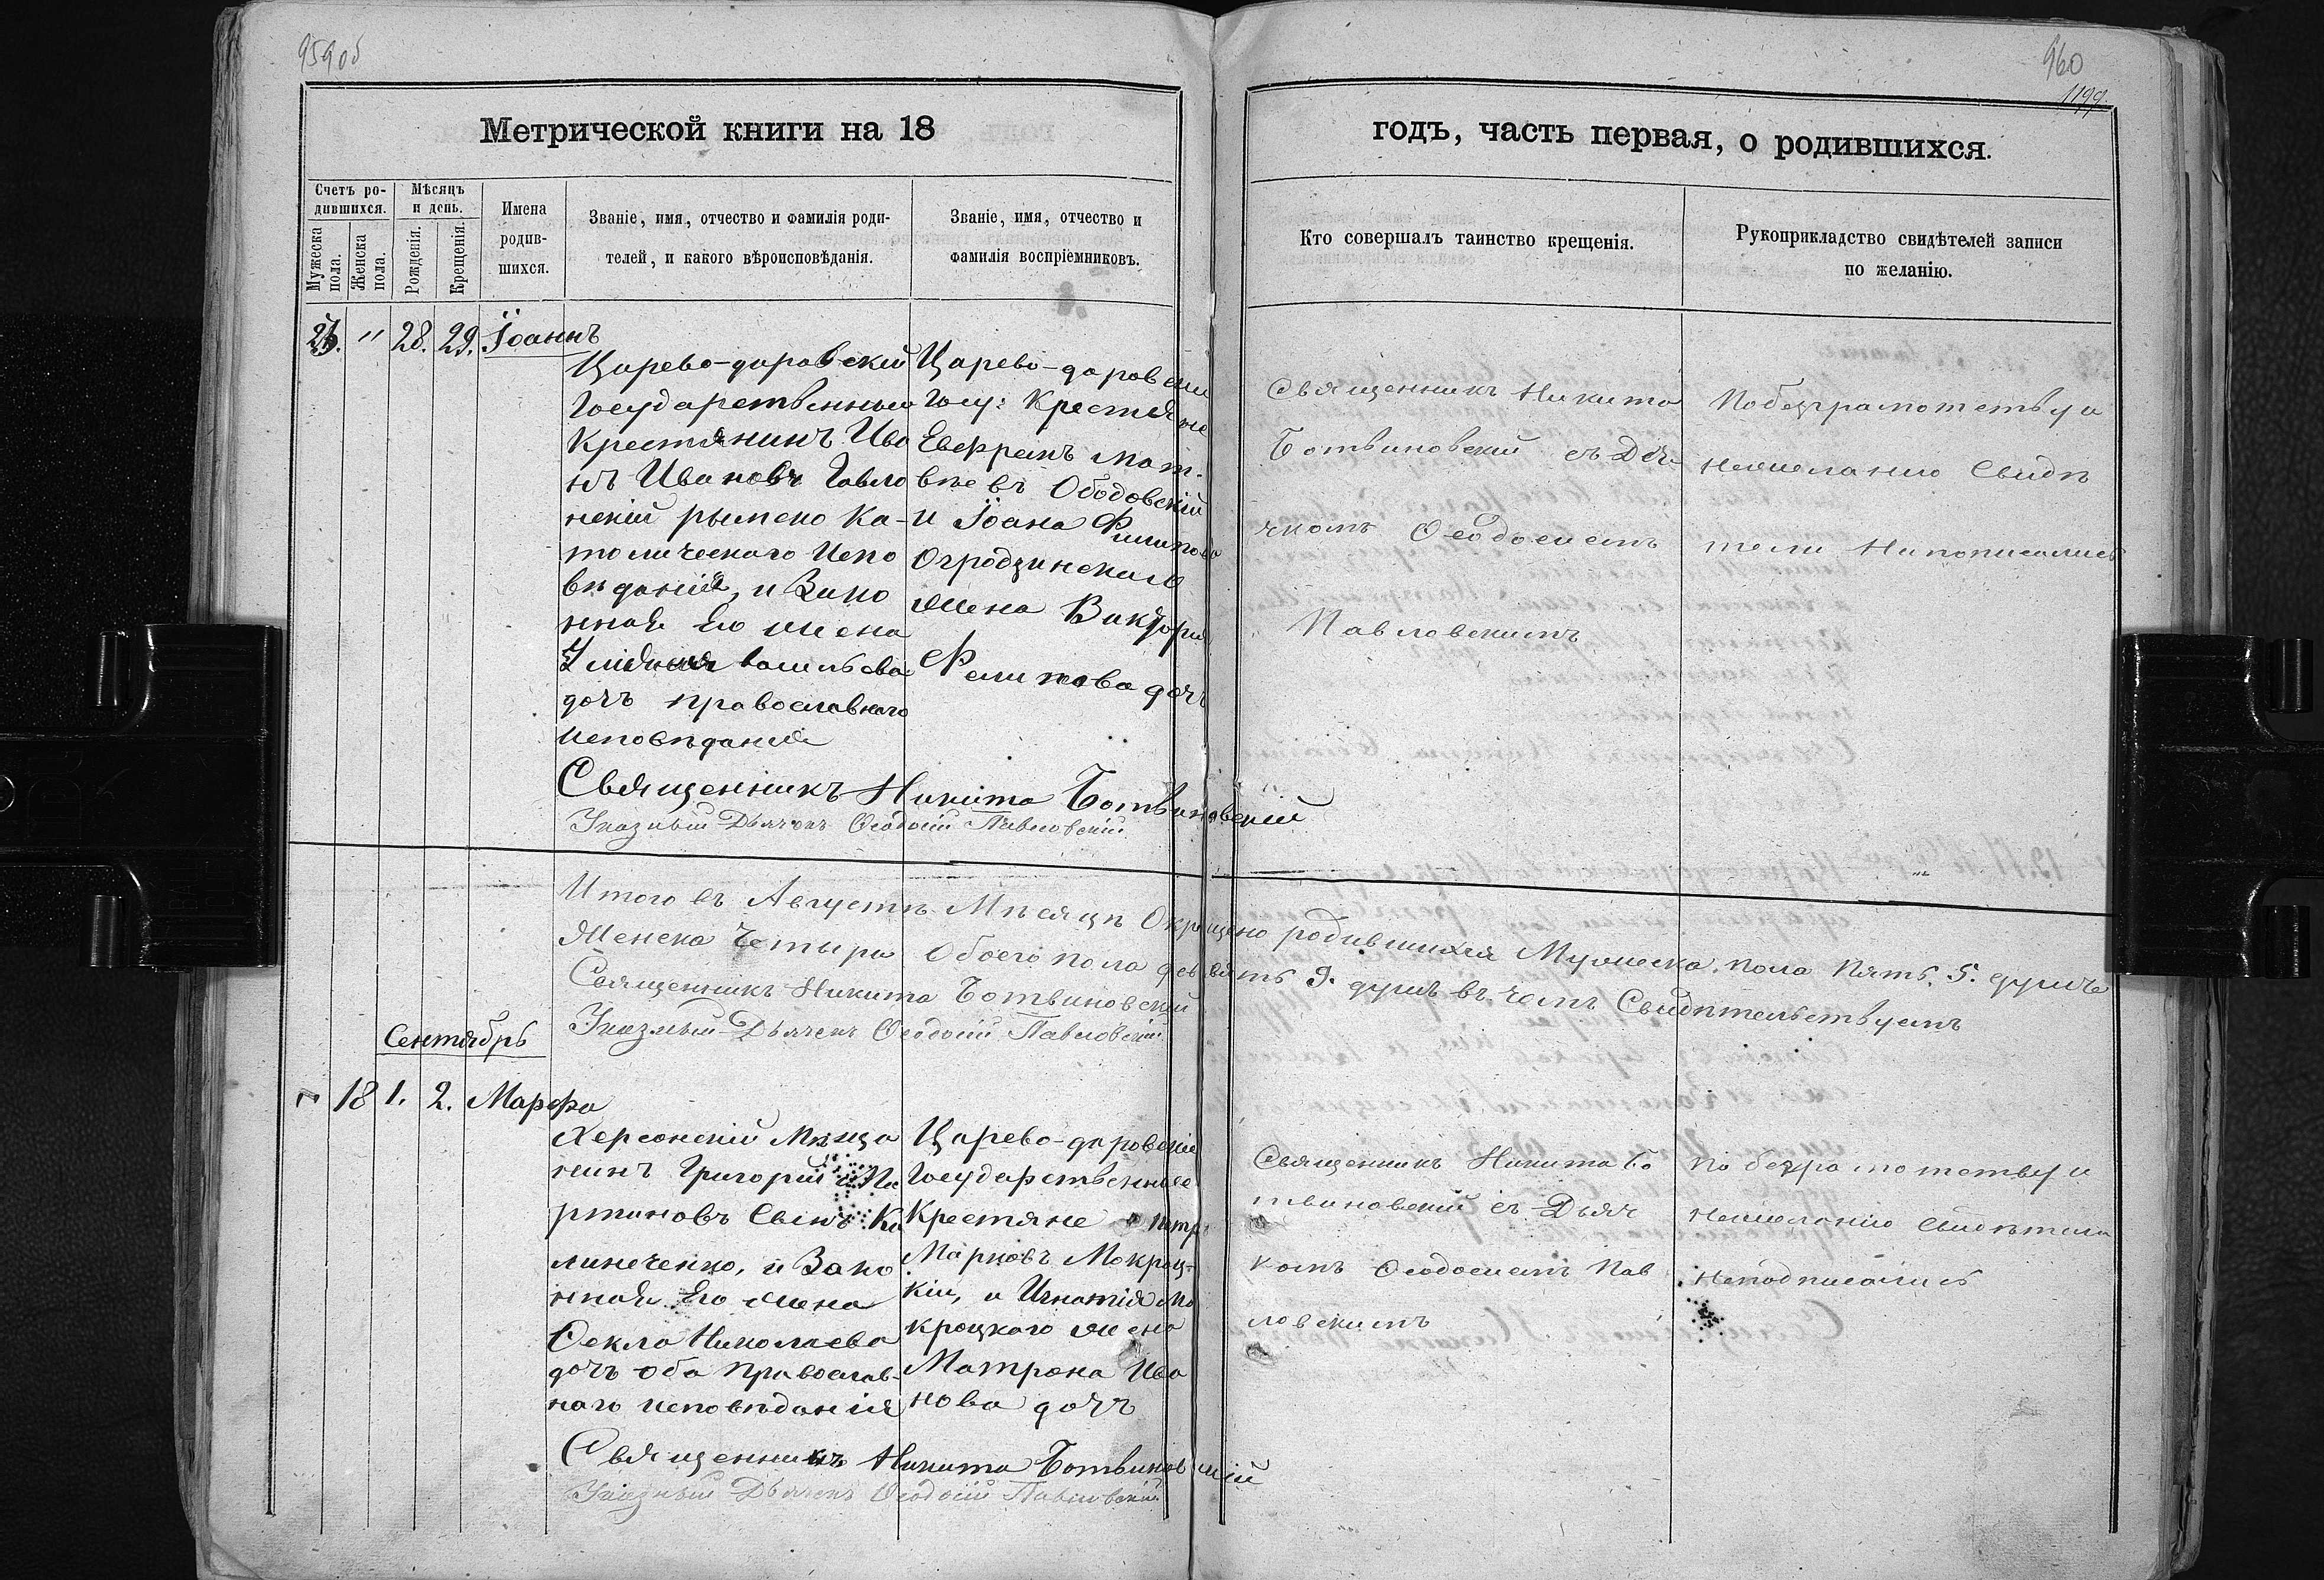 959об
960
1199
Метрической книги на 18
годъ, часть первая, о родившихся.
Счетъ ро-
дившихся.
Мѣсяцъ
и день.
Мужеска
пола.
Женска
пола.
Рожденія.
Крещенія.
Имена
родив-
шихся.
Званіе, имя, отчество и фамилія роди-
телей, и какого вѣроисповѣданія.
Званіе, имя, отчество и
фамилія воспріемниковъ.
Кто совершалъ таинство крещенія.
Рукоприкладство свидѣтелей записи
по желанію.
" 28. 29. Іоаннъ
Царево-даровский
Государственный
Крестянинъ Ива
нъ Ивановъ
рымско Ка-
толического Испо
вѣданія, и Зако
нная Его жена
васильева
дочъ православного
Исповѣданія
Царево-даровские
Госу: Крестяне
Евфремъ Мат-
вѣевъ Ободовскій
и Іоана Филипова
Огродзинскаго
жена Викторія
Филипова дочъ
Священникъ Никита
Ботвиновский съ Дья-
чкомъ Ѳеодосиемъ
Павловскимъ
По безграмотству и
нежеланию Свидѣ
тели Неподписались
Священникъ Никита Ботвиновский
Указный Дьячекъ Ѳеодосій Павловскій
Итого въ Августѣ Мѣсяцѣ Окрещено родившихся Мужеска пола Пять 5. душъ
Женска Четыри Обоего пола девять 9. душъ въ чемъ Свидѣтельствуемъ
Священникъ Никита Ботвиновский
Указный Дьячекъ Ѳеодосій Павловский
Сентябрь
" 18 1. 2. Марфа
Херсонский Мѣща
нинъ Григорий Ма
ртиновъ Сынъ Ка
линеченко, и Зако
нная Его жена
Ѳекла Николаева
дочъ оба Православ-
наго исповѣданія
Царево-даровские
Государственные
Крестяне Петръ
Марковъ Мокроц-
кій, и Игнатія Мо
кроцкого жена
Матрона Ива
нова дочъ
Священникъ Никита Бо
твиновский съ Дьяч
комъ Ѳеодосиемъ Пав
ловскимъ
По безграмотству и
Нежеланию Свидѣтели
Неподписались
Священникъ Никита Ботвиновский
Указный Дьячекъ Ѳеодосій Павловский